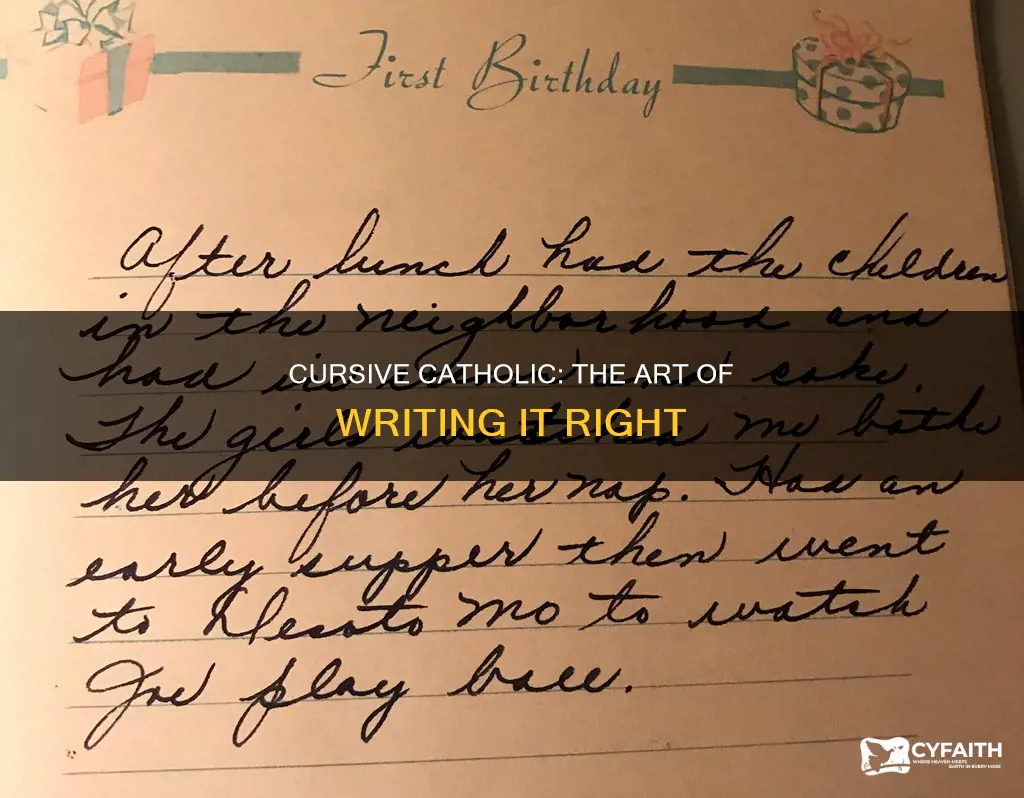 First Birthday
After lunch had the children
in the neighborhood and
had and cake.
CURSIVE CATHOLIC: THE ART OF
The girls watched me bathe
WRITING IT RIGHT
her before her nap. Had an
early supper then went
to Desoto Mo to watch
Joe play ball.
CYFAITH
WHERE HEAVEN MEETS
EARTH IN EVERY MASS